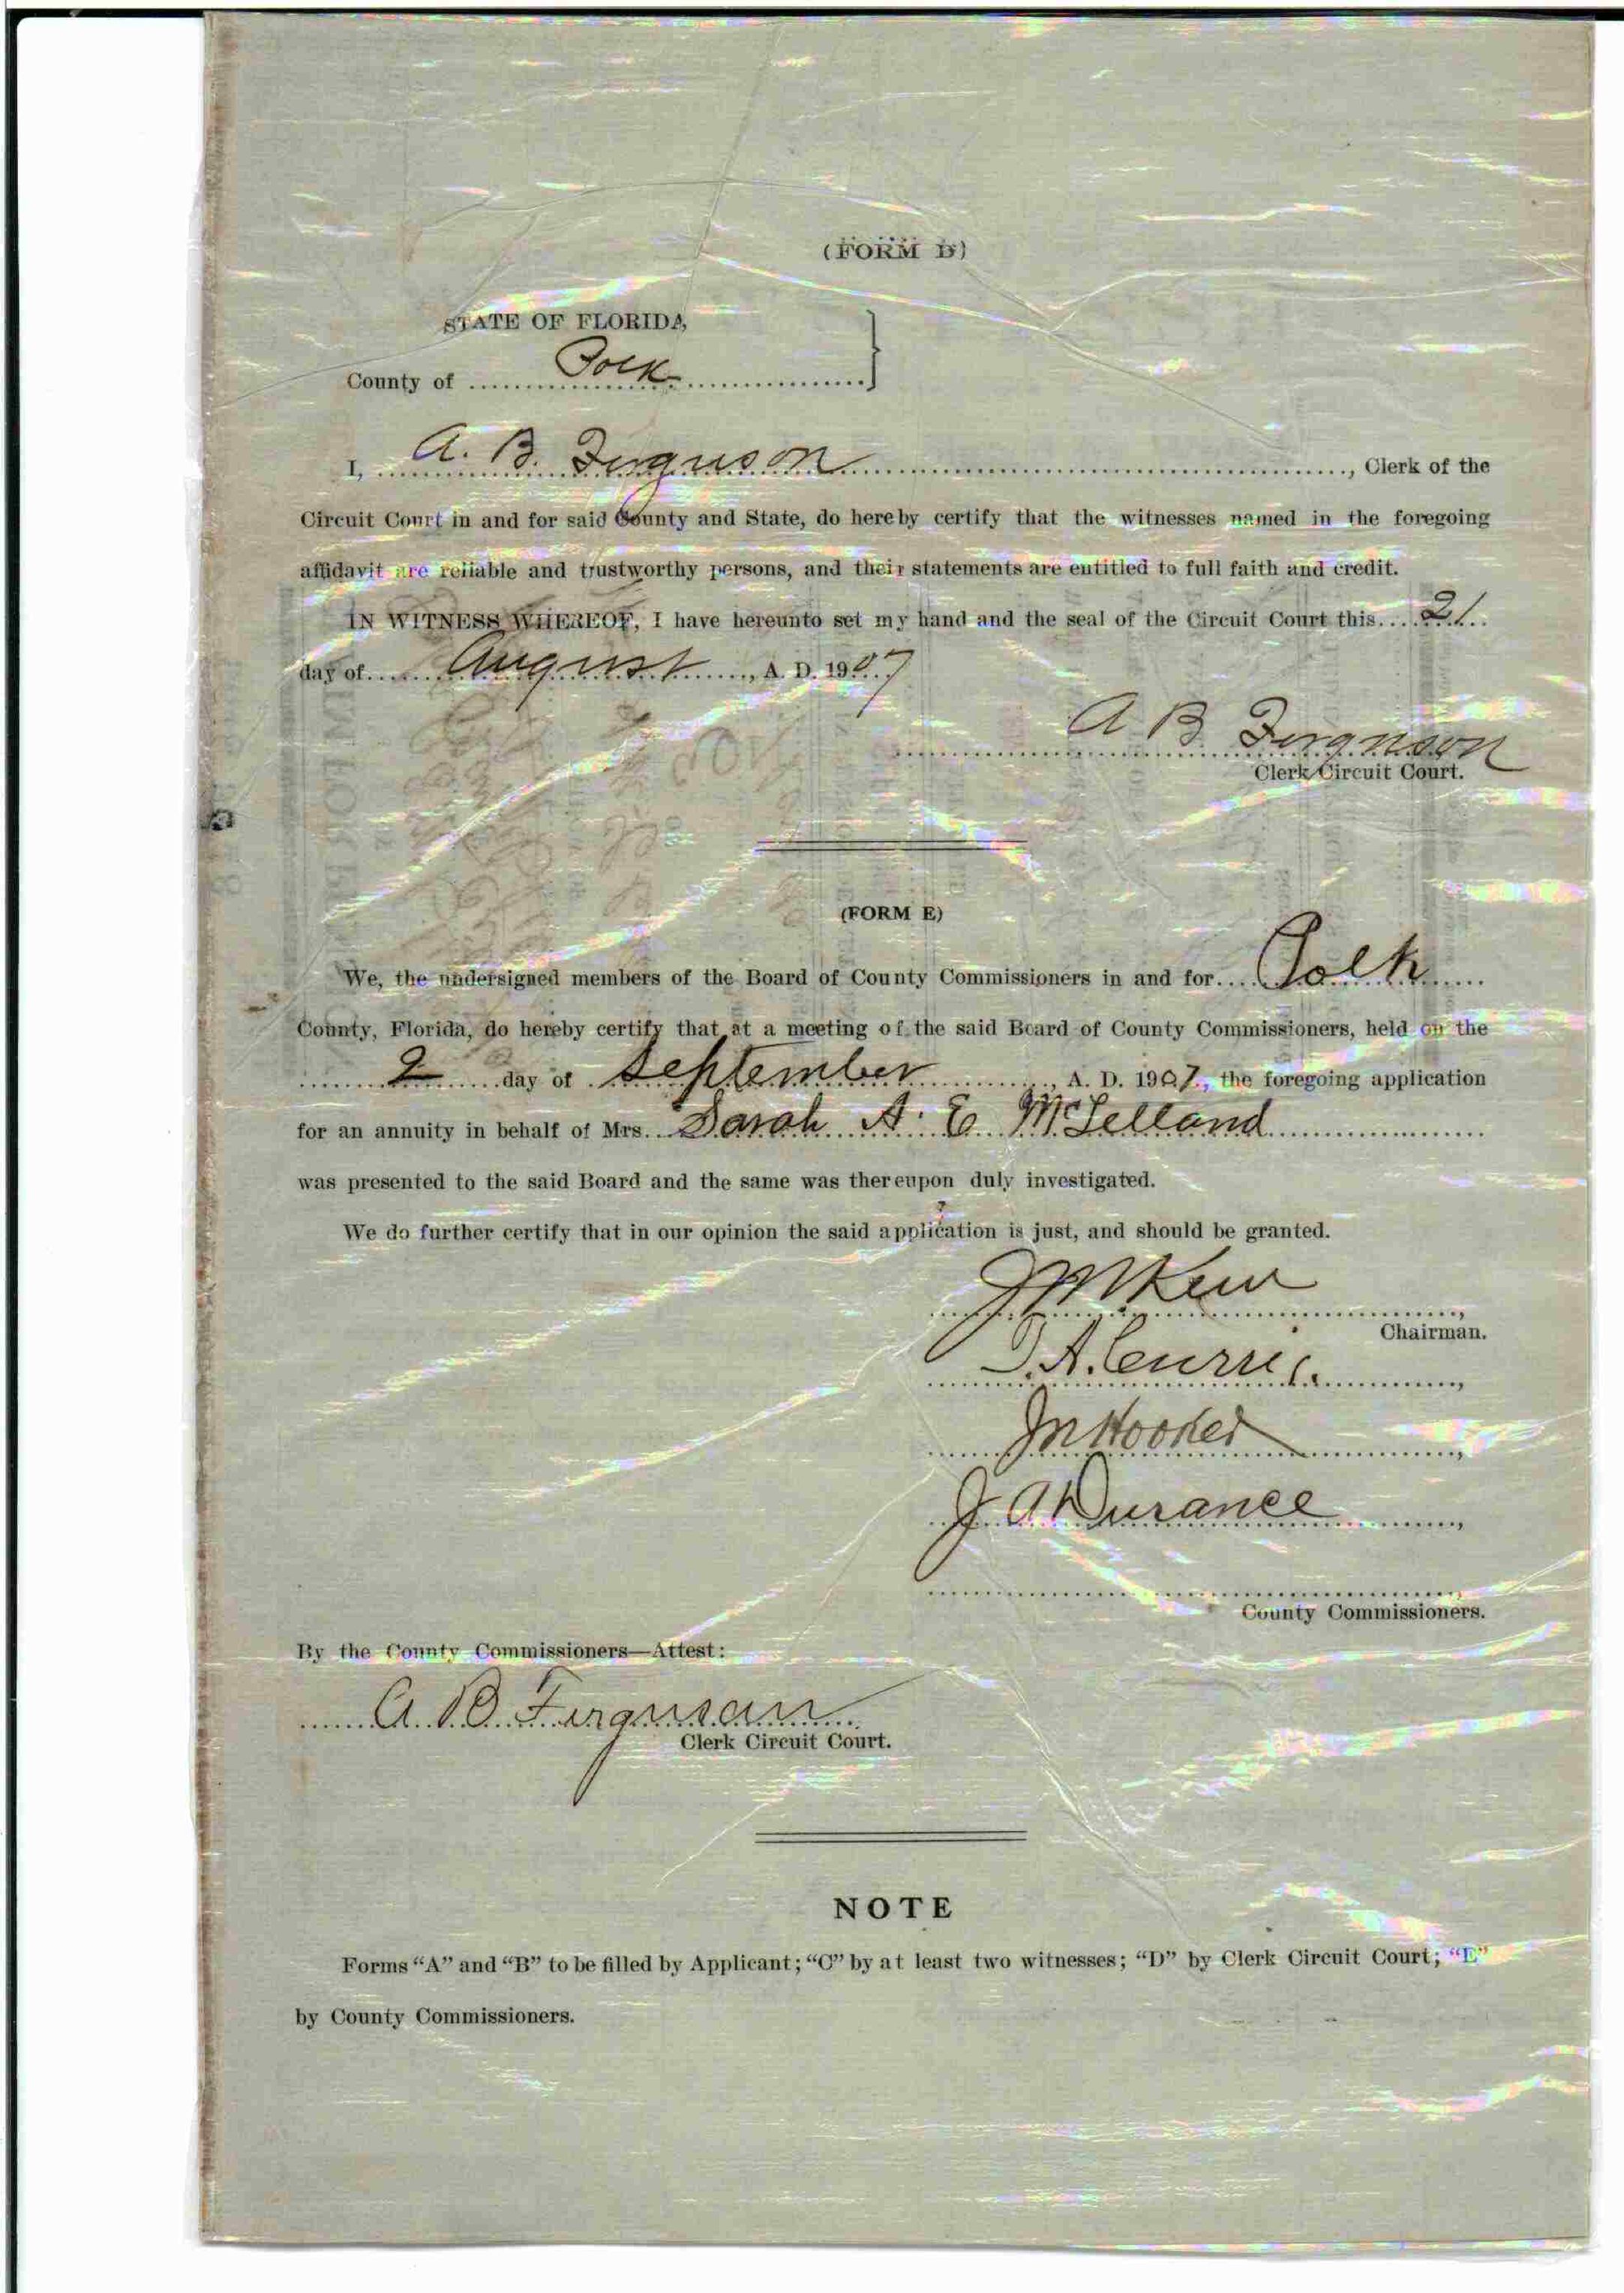 (FORM D)
STATE OF FLORIDA,
County of Polk
I, A. B. Ferguson, Clerk of the
Circuit Court in and for said County and State, do hereby certify that the witnesses named in the foregoing
affidavit are reliable and trustworthy persons, and their statements are entitled to full faith and credit.
IN WITNESS WHEREOF, I have hereunto set my hand and the seal of the Circuit Court this 21
day of August, A. D. 1907
A B Ferguson
Clerk Circuit Court.
(FORM E)
We, the undersigned members of the Board of County Commissioners in and for Polk
County, Florida, do hereby certify that at a meeting of the said Board of County Commissioners, held on the
2 day of September, A. D. 1907, the foregoing application
for an annuity in behalf of Mrs. Sarah A. E. McLelland
was presented to the said Board and the same was thereupon duly investigated.
We do further certify that in our opinion the said application is just, and should be granted.
Chairman.
T. A. Currie.
J M Hooker
J A Durance
County Commissioners.
By the County Commissioners—Attest:
A B Ferguson
Clerk Circuit Court.
NOTE
Forms "A" and "B" to be filled by Applicant; "C" by at least two witnesses; "D" by Clerk Circuit Court; "E"
by County Commissioners.